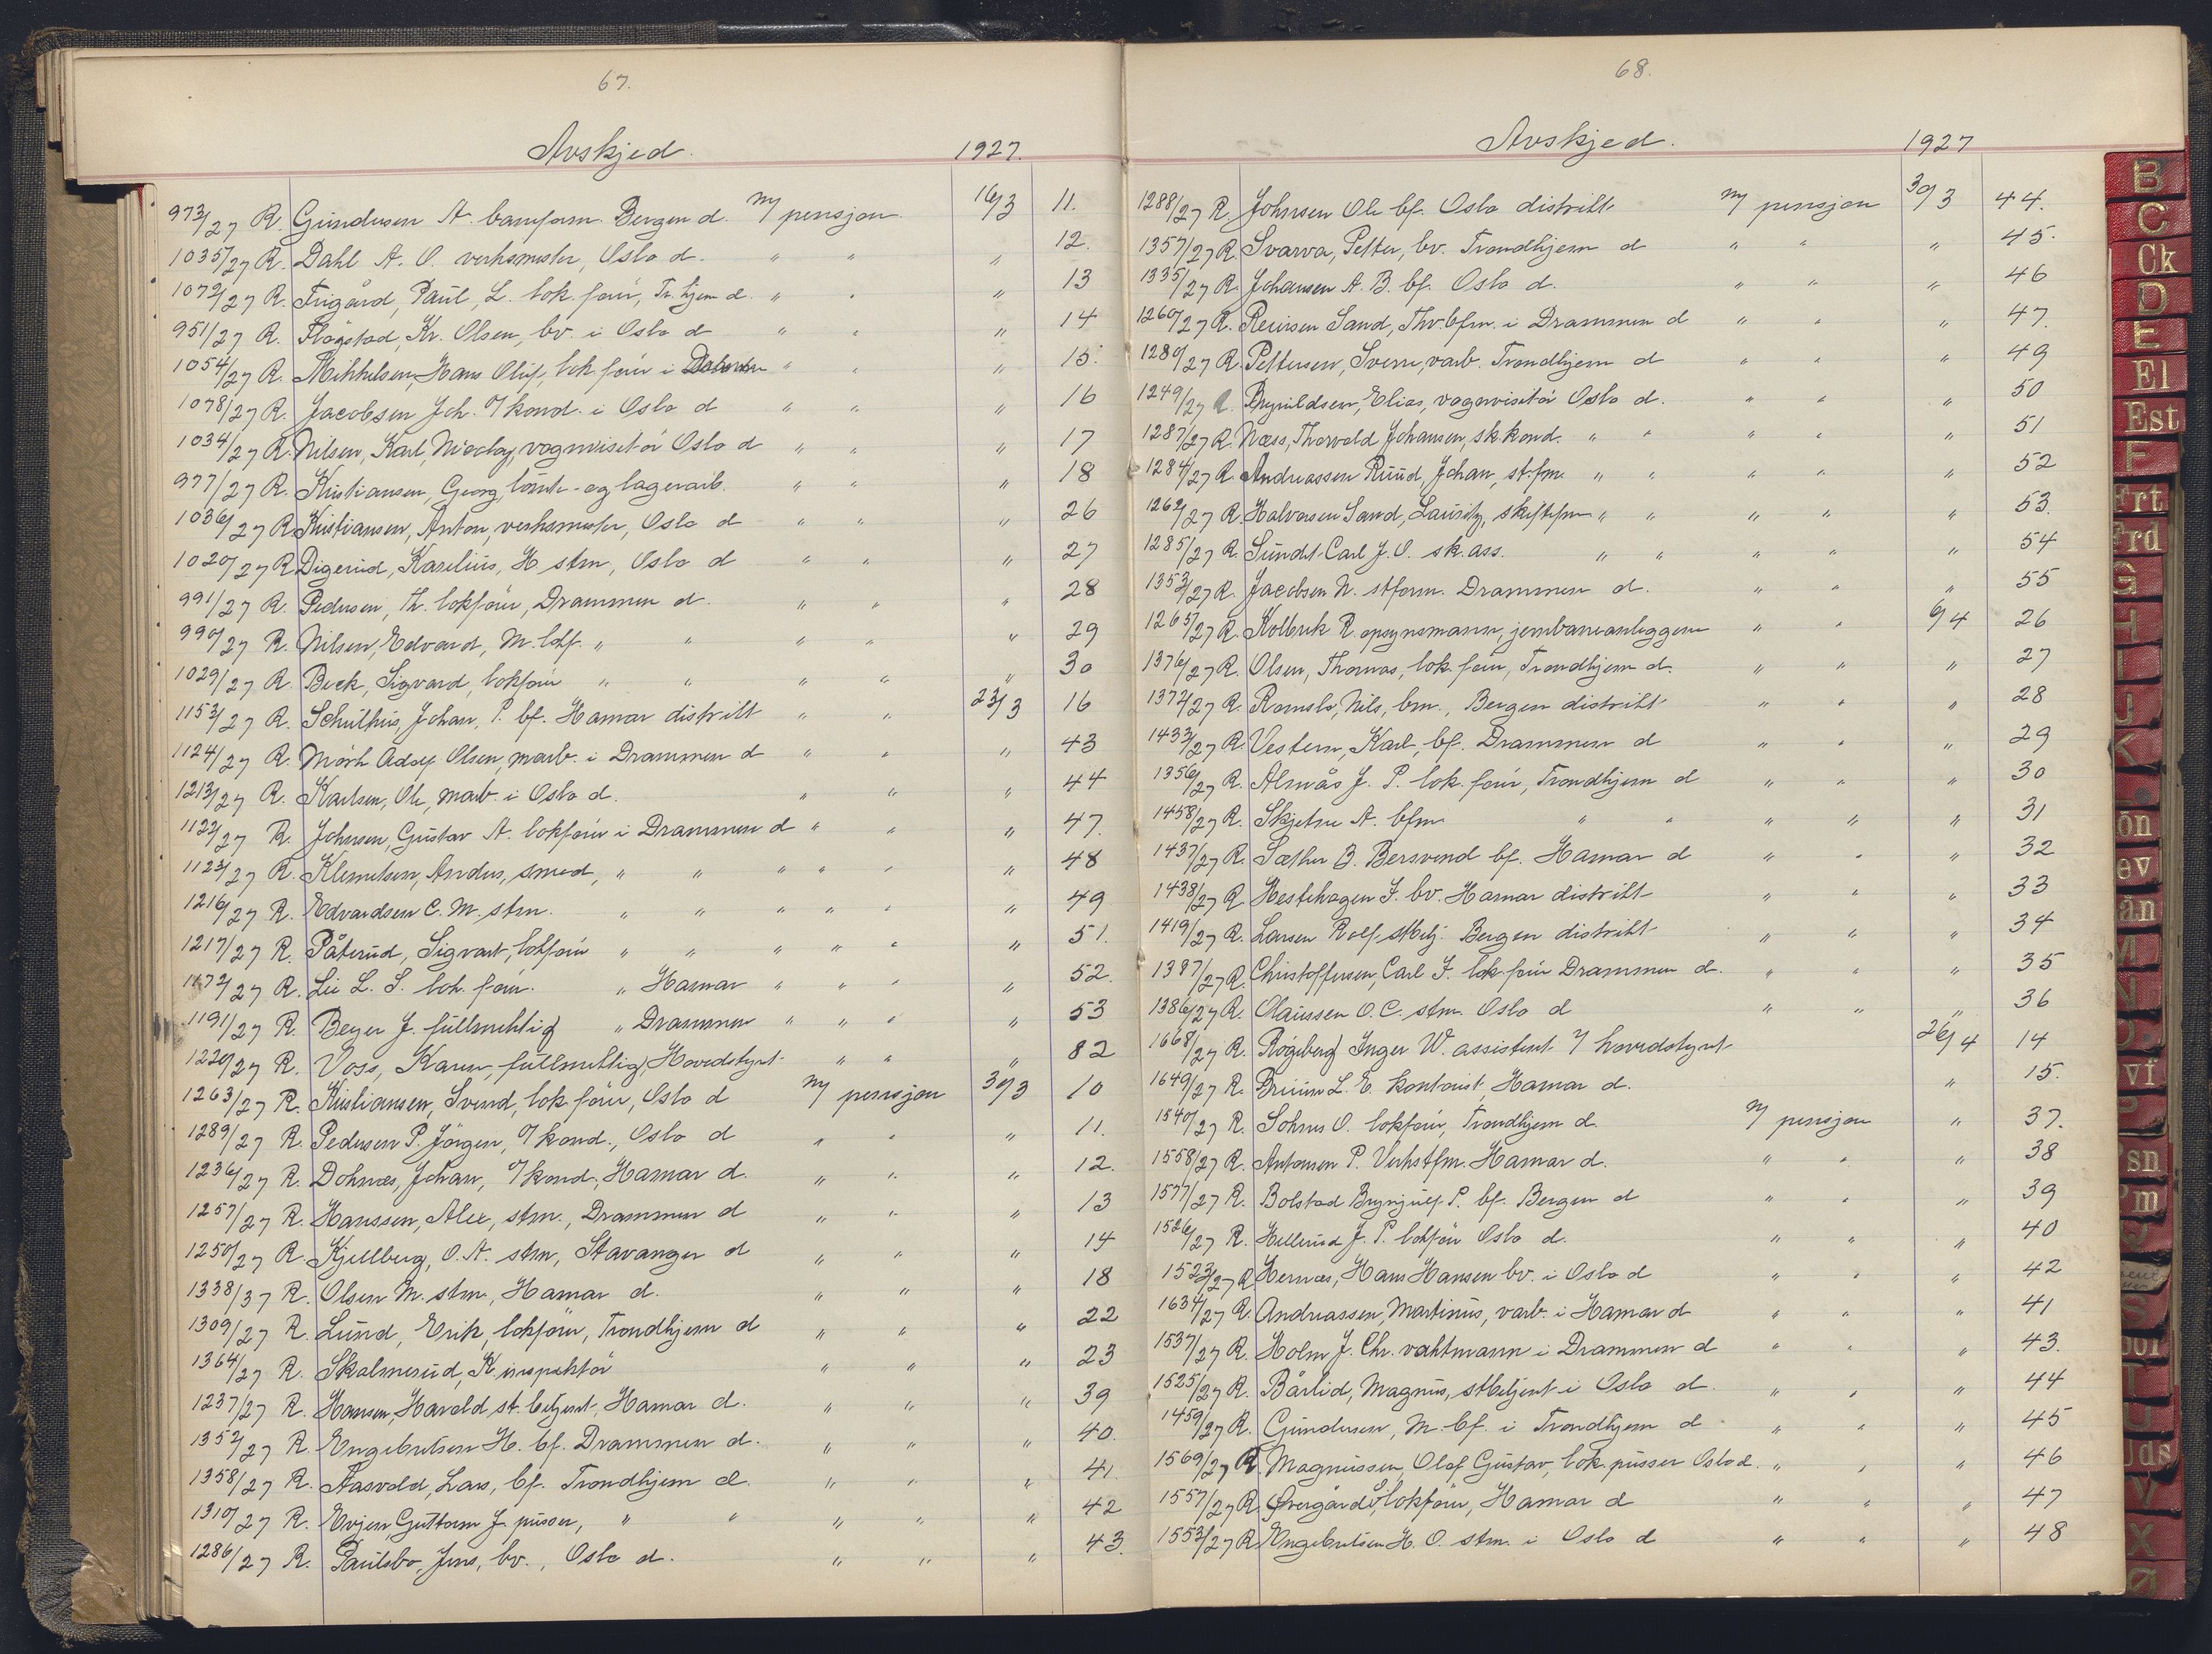 67.
Avskjed. 1927.
973/27 R. Gundersen A. baneform. Bergen d. m/ pensjon. 16/3 11.
1035/27 R. Dahl A. O. verksmester, Oslo d. " " " 12.
1072/27 R. Frigård, Paul, L. lok.før, Tr.hjem d. " " " 13
951/27 R. Flågstad, Kr. Olsen, bv. i Oslo d " " " 14
1054/27 R. Mikkelsen, Hans Oluf, lok.før i " " " 15.
1078/27 R. Jacobsen Joh. o/kond. i Oslo d " " " 16
1034/27 R. Nilsen, Karl, vognvisitør Oslo d " " " 17
977/27 R. Kristiansen, Georg, tomte- og lagerarb. " " " 18
1036/27 R. Kristiansen, Anton, verksmester, Oslo d " " " 26
1020/27 R. Digerud, Karelius, H. stm, Oslo d " " " 27
991/27 R. Pedersen, Th. lokfører, Drammen d. " " " 28
990/27 R. Nilsen, Edvard, M. lokf. " " " " " 29
1029/27 R. Beck, Sigvard, lokfør " " " " " 30
1153/27 R. Schulthis, Johan, P. bf. Hamar distrikt " " 23/3 16
1124/27 R. Mörk Adolf Olsen, marb. i Drammen d " " " 43
1213/27 R. Karlsen, Ole, marb. i Oslo d. " " " 44
1122/27 R. Johnsen, Gustav A. lokfører i Drammen d " " " 47.
1123/27 R. Klemetsen, Anders, smed, " " " " " " 48
1216/27 R. Edvardsen C. M. stm. " " " " " " 49
1217/27 R. Påterud, Sigvart, lokfør " " " " " " 51.
1172/27 R. Lie L. S. lok.før. " Hamar " " " " 52.
1191/27 R. Beyer J. fullmektig " Drammen " " " " 53
1220/27 R. Voss, Karen, fullmektig, Hovedstyret " " " 82
1263/27 R. Kristiansen, Svend, lok.før, Oslo d m/ pensjon 30/3 10
1289/27 R. Pedersen P. Jörgen, o/kond., Oslo d " " " 11.
1236/27 R. Dohnæs, Johan, o/kond., Hamar d. " " " 12.
1257/27 R. Hanssen, Alex, stm., Drammen d " " " 13
1250/27 R. Kjellberg, O. A. stm, Stavanger d " " " 14
1338/37 R. Olsen M. stm, Hamar d. " " " 18
1309/27 R. Lund, Erik, lokfører, Trondhjem d " " " 22
1364/27 R. Skalmerud, K. inspektør " " " 23
1237/27 R. Hansen, Harald st.betjent, Hamar d. " " " 39
1352/27 R. Engebretsen H. bf. Drammen d. " " " 40.
1358/27 R. Aasvold, Lars, bf. Trondhjem d. " " " 41.
1310/27 R. Evjen, Guttorm J. pusser, " " " " " 42
1286/27 R. Paulsbo, Jens, bv., Oslo d. " " " 43.
68.
Avskjed. 1927
1288/27 R. Johnsen Ole bf. Oslo distrikt m/ pensjon 30/3 44.
1357/27 R. Svarva, Petter, bv. Trondhjem d " " " 45.
1335/27 R. Johansen A. B. bf. Oslo d. " " " 46
1260/27 R. Reiersen Sand, Thv. bfm. i Drammen d " " " 47.
1280/27 R. Pettersen, Sverre, varb. Trondhjem d " " " 49
1249/27 R. Brynildsen, Elias, vognvisitør Oslo d. " " " 50
1287/27 R. Næss, Thorvald Johansen, sk.kond. " " " " " 51
1284/27 R. Andreassen Ruud, Johan, st.fm. " " " " " 52
1262/27 R. Halvorsen Sand, Lauritz, skiftefm " " " " " 53.
1285/27 R. Sundt Carl J. O. sk.ass. " " " " " 54
1353/27 R. Jacobsen N. stform. Drammen d. " " " 55
1265/27 R. Kolbrek R. opsynsmann, jernbaneanleggene " " 6/4 26
1376/27 R. Olsen, Thomas, lok.før, Trondhjem d. " " " 27
1372/27 R. Romslo, Nils, bm., Bergen distrikt " " " 28
1433/27 R. Vestern, Karl, bf. Drammen d " " " 29
1356/27 R. Almås J. P. lok.før, Trondhjem d " " " 30
1458/27 R. Skjetne A. bfm " " " " " 31
1437/27 R. Sæther B. Bersvend bf. Hamar d " " " 32
1438/27 R. Hestehagen J. bv. Hamar distrikt " " " 33
1419/27 R. Larsen Rolf stbtj. Bergen distrikt " " " 34
1387/27 R. Christoffersen, Carl F. lok.før Drammen d. " " " 35
1386/27 R. Olaussen O. C. stm. Oslo d " " " 36
1668/27 R. Rogeberg Inger W. assistent i/ hovedstyret 26/4 14
1649/27 R. Bruun L. E. kontorist, Hamar d. " 15.
1540/27 R. Sohnes O. lokfør, Trondhjem d. m/ pensjon " 37.
1558/27 R. Antonsen P. Verkstfm. Hamar d. " " " 38
1577/27 R. Bolstad Brynjulf P. bf. Bergen d " " " 39
1526/27 R. Hellerud J. P. lokfør Oslo d. " " " 40
1523/27 R. Hernæs, Hans Hansen bv. i Oslo d " " " 42
1634/27 R. Andreassen, Martinus, varb. i Hamar d " " " 41
1537/27 R. Holm J. Chr. vaktmann i Drammen d " " " 43.
1525/27 R. Bårlid, Magnus, stbetjent i Oslo d. " " " 44
1459/27 R. Gundersen, M. bf. i Trondhjem d " " " 45
1569/27 R. Magnussen, Olaf Gustav, lok.pusser Oslo d. " " " 46
1557/27 R. Øvergård, lokfører, Hamar d " " " 47
1553/27 R. Engebretsen H. O. stm. i Oslo d " " " 48
B
C
Ck
D
E
El
Est
F
Frt
Frd
G
H
I
J
K
M
N
O
P
S
T
U
V
X
Ø